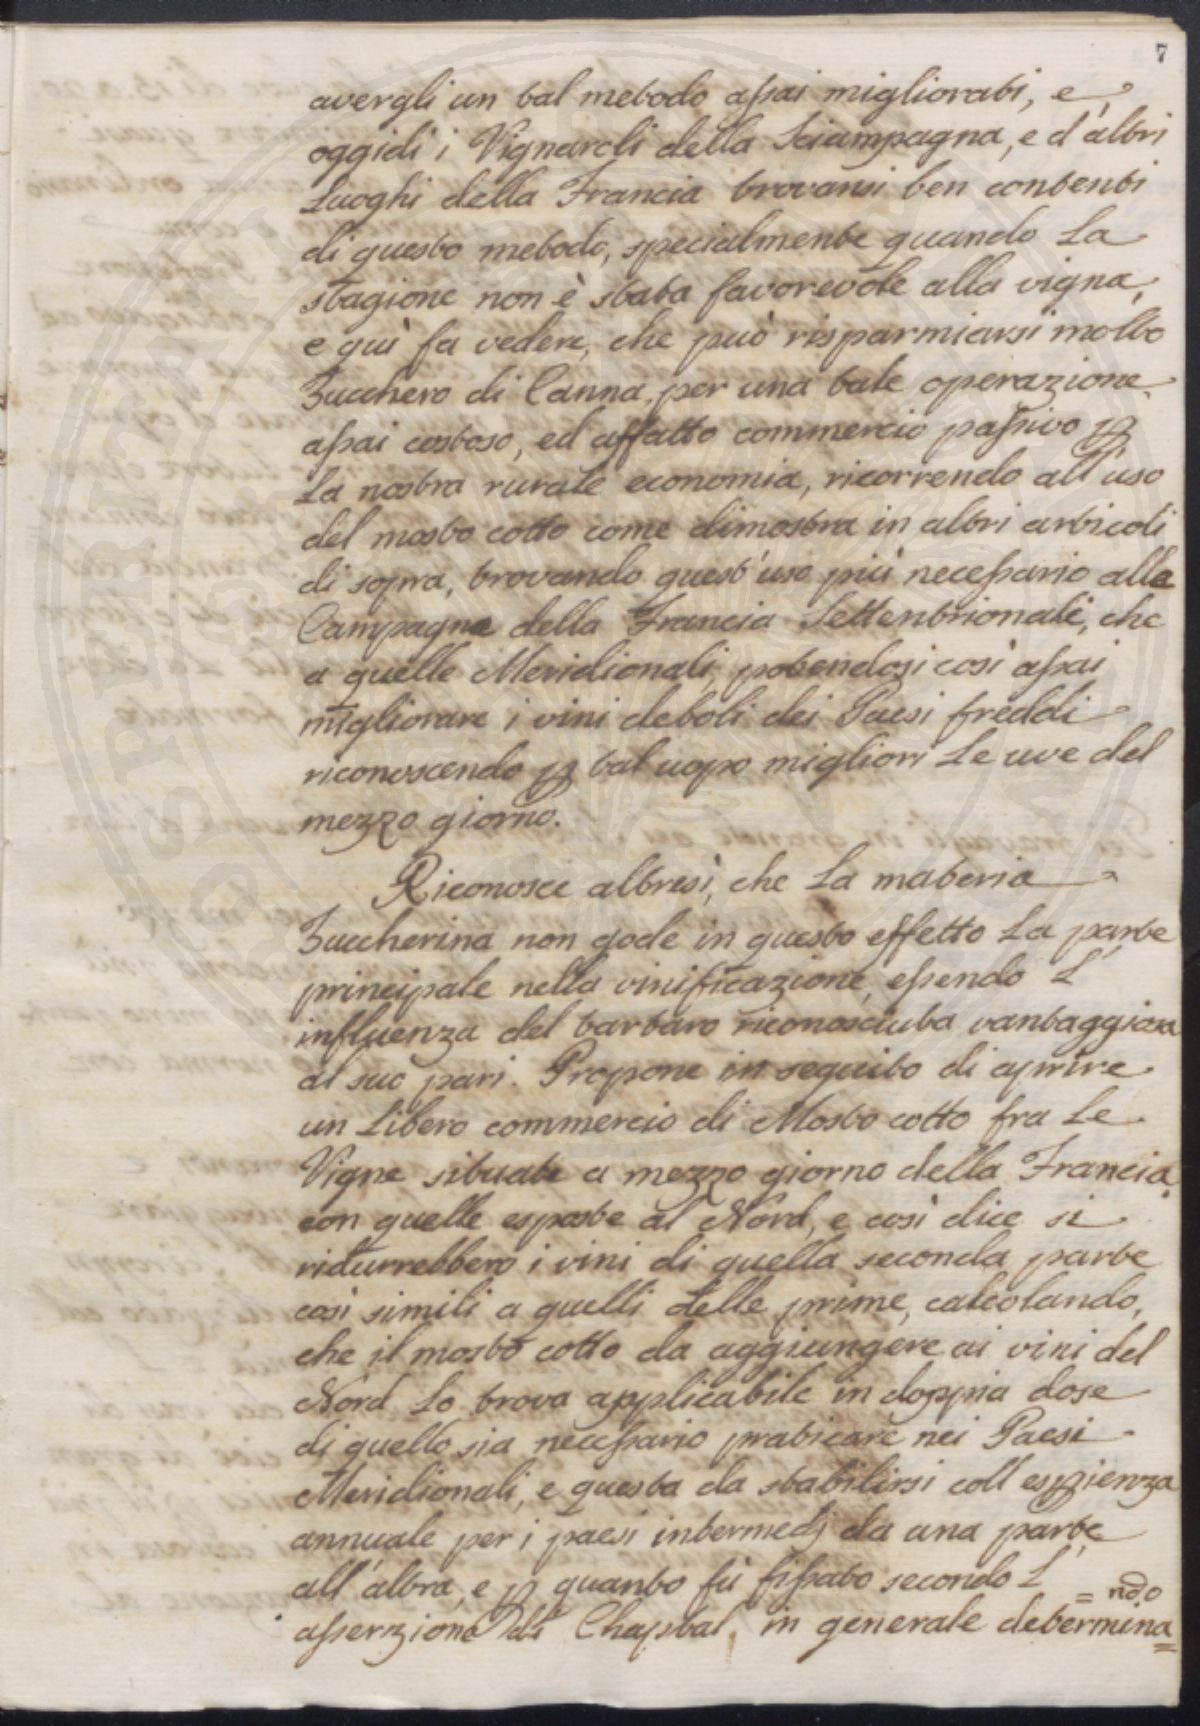 7
avergli un tal metodo assai migliorati, e,
oggidì i Vignaroli della Sciampagna, e d'altri
Luoghi della Francia trovansi ben contenti
di questo metodo, specialmente quando La
stagione non è stata favorevole alla vigna,
e quì fa vedere, che può risparmiarsi molto
Zucchero di Canna, per una tale operazione
assai costoso, ed affatto commercio passivo p
La nostra rurale economia, ricorrendo all'uso
del mosto cotto come dimostra in altri articoli
di sopra, trovando quest'uso più necessario alle
Campagne della Francia Settentrionale, che
a quelle Meridionali, potendosi così assai
migliorare i vini deboli dei Paesi freddi
riconoscendo p tal uopo migliori Le uve del
mezzo giorno.
Riconosce altresì, che La materia
Zuccherina non gode in questo effetto La parte
principale nella vinificazione, essendo L'
influenza del tartaro riconosciuta vantaggiosa
al suo pari. Propone in seguito di aprire
un Libero commercio di Mosto cotto fra Le
Vigne situate a mezzo giorno della Francia,
con quelle esposte al Nord, e così dice si
ridurrebbero i vini di quella seconda parte
così simili a quelli delle prime, calcolando,
che il mosto cotto da aggiungere ai vini del
Nord Lo trova applicabile in doppia dose
di quello sia necessario praticare nei Paesi
Meridionali, e questa da stabilirsi coll'espienza
annuale per i paesi intermedj da una parte
all'altra, e p quanto fù fissato secondo L'
asserzione di Chaptal, in generale determina
= ndo =